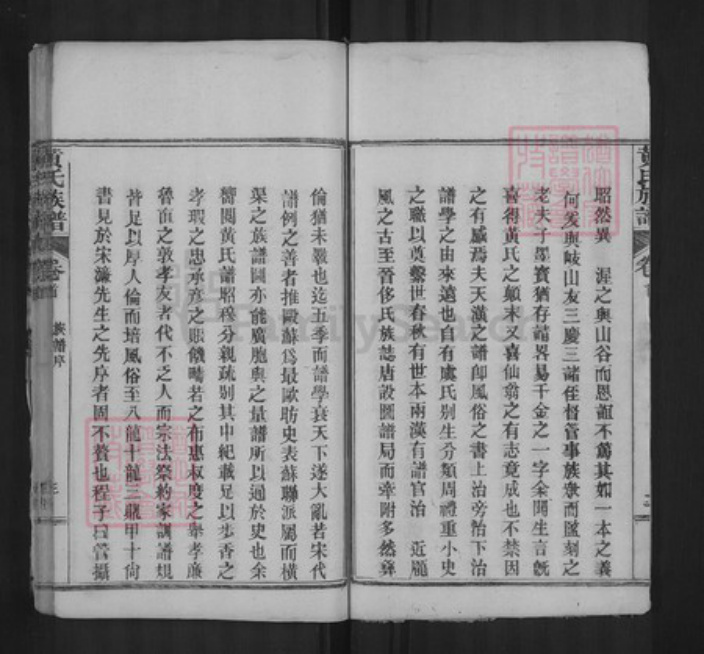 黃氏族譜
卷首
昭然異 渥之與山谷而恩誼不篤其如一本之義
何爰與岐山友三慶三諸侄督管事族尞而匯刻之
老夫子墨寶猶存請畧易千金之一字余聞生言旣
喜得黃氏之顛末又喜仙翁之有志竟成也不禁因
之有感焉夫天漢之譜卽風俗之書上治旁治下治
譜學之由來遠也自有虞氏别生分類周禮重小史
之職以奠繫世春秋有世本兩漢有譜官治 近龐
風之古至晉侈氏族誌唐設圖譜局而牽附多然彛
倫猶未斁也迄五季而譜學衰天下遂大亂若宋代
譜例之善者推歐蘇爲最歐昉史表蘇聯派屬而橫
渠之族譜圖亦能廣胞與之量譜所以通於史也余
嘗閱黃氏譜昭穆分親疏别其中紀載足以步香之
孝瑕之忠承彥之賑饑疇若之布惠叔度之舉孝廉
魯直之敦孝友者代不乏人而宗法祭約家訓譜規
皆足以厚人倫而培風俗至八龍十龍三瓶甲十尙
書見於宋濂先生之先序者固不贅也程子曰管攝
黃氏族譜
卷首
族譜序
三
FamilySearch